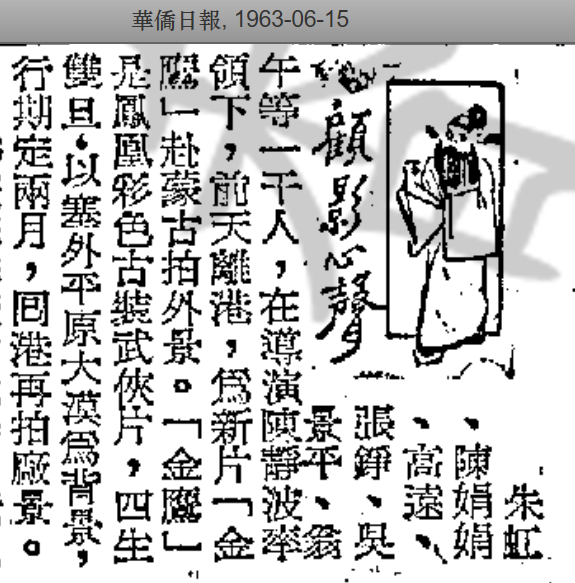 華僑日報, 1963-06-15
顧影心聲
朱虹
、陳娟娟
、高遠、
張錚、吳
景平、翁
午等一干人，在導演陳靜波率
領下，前天離港，爲新片「金
鷹」赴蒙古拍外景。「金鷹」
是鳳凰彩色古裝武俠片，四生
雙旦。以塞外平原大漠爲背景，
行期定兩月，囘港再拍廠景。